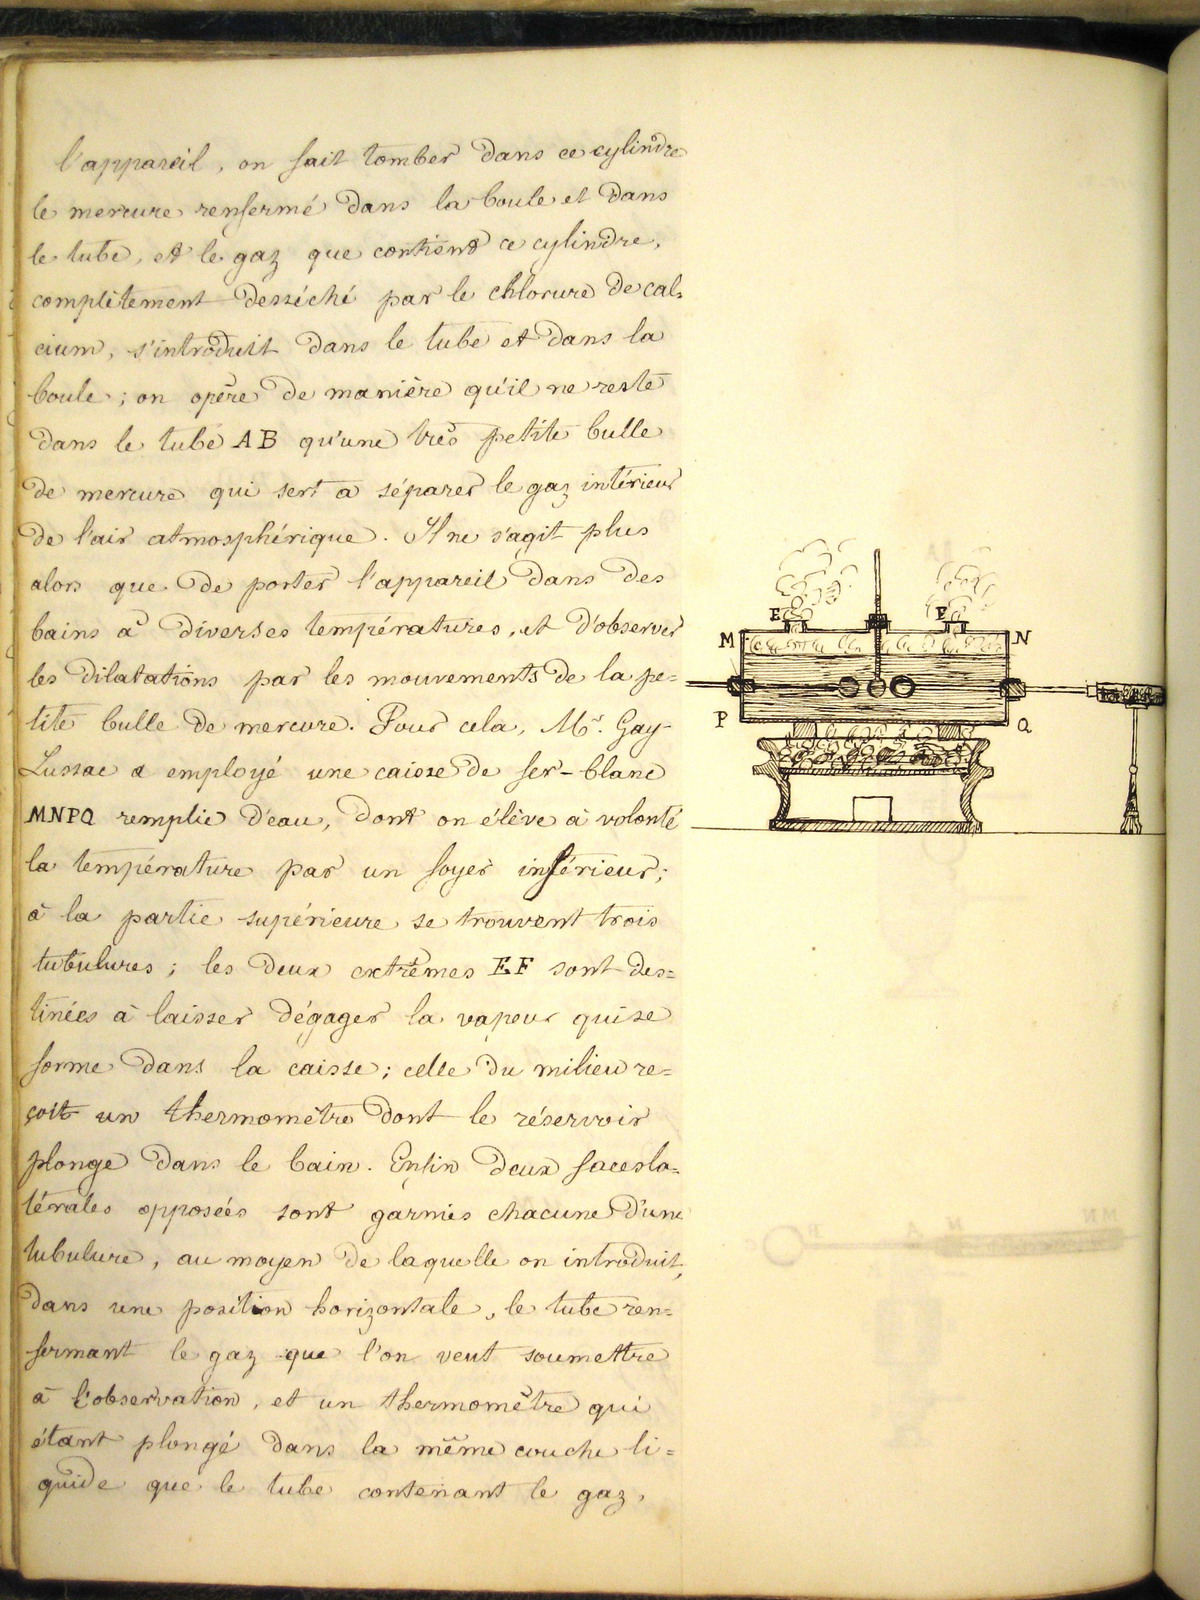 l'appareil, on fait tomber dans ce cylindre
le mercure renfermé dans la boule et dans
le tube, et le gaz que contient ce cylindre,
complètement desséché par le chlorure de cal=
cium, s'introduit dans le tube et dans la
boule ; on opère de manière qu'il ne reste
dans le tube AB qu'une très petite bulle
de mercure qui sert a séparer le gaz intérieur
de l'air atmosphérique. Il ne s'agit plus
alors que de porter l'appareil dans des
bains à diverses températures, et d'observer
les dilatations par les mouvements de la pe=
tite bulle de mercure. Pour cela, Mr. Gay-
Lussac a employé une caisse de fer-blanc
MNPQ remplie d'eau, dont on élève à volonté
la température par un foyer inférieur ;
à la partie supérieure se trouvent trois
tubulures ; les deux extrêmes EF sont des=
tinées à laisser dégager la vapeur qui se
forme dans la caisse ; celle du milieu re=
çoit un thermomètre dont le réservoir
plonge dans le bain. Enfin deux faces la=
térales opposées sont garnies chacune d'une
tubulure, au moyen de laquelle on introduit,
dans une position horizontale, le tube ren=
fermant le gaz que l'on veut soumettre
à l'observation, et un thermomètre qui
étant plongé dans la même couche li=
quide que le tube contenant le gaz,
E F
M N
P Q